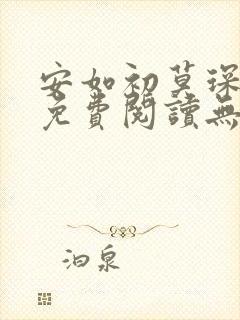 安如初莫琛
免費閱讀無
泊泉